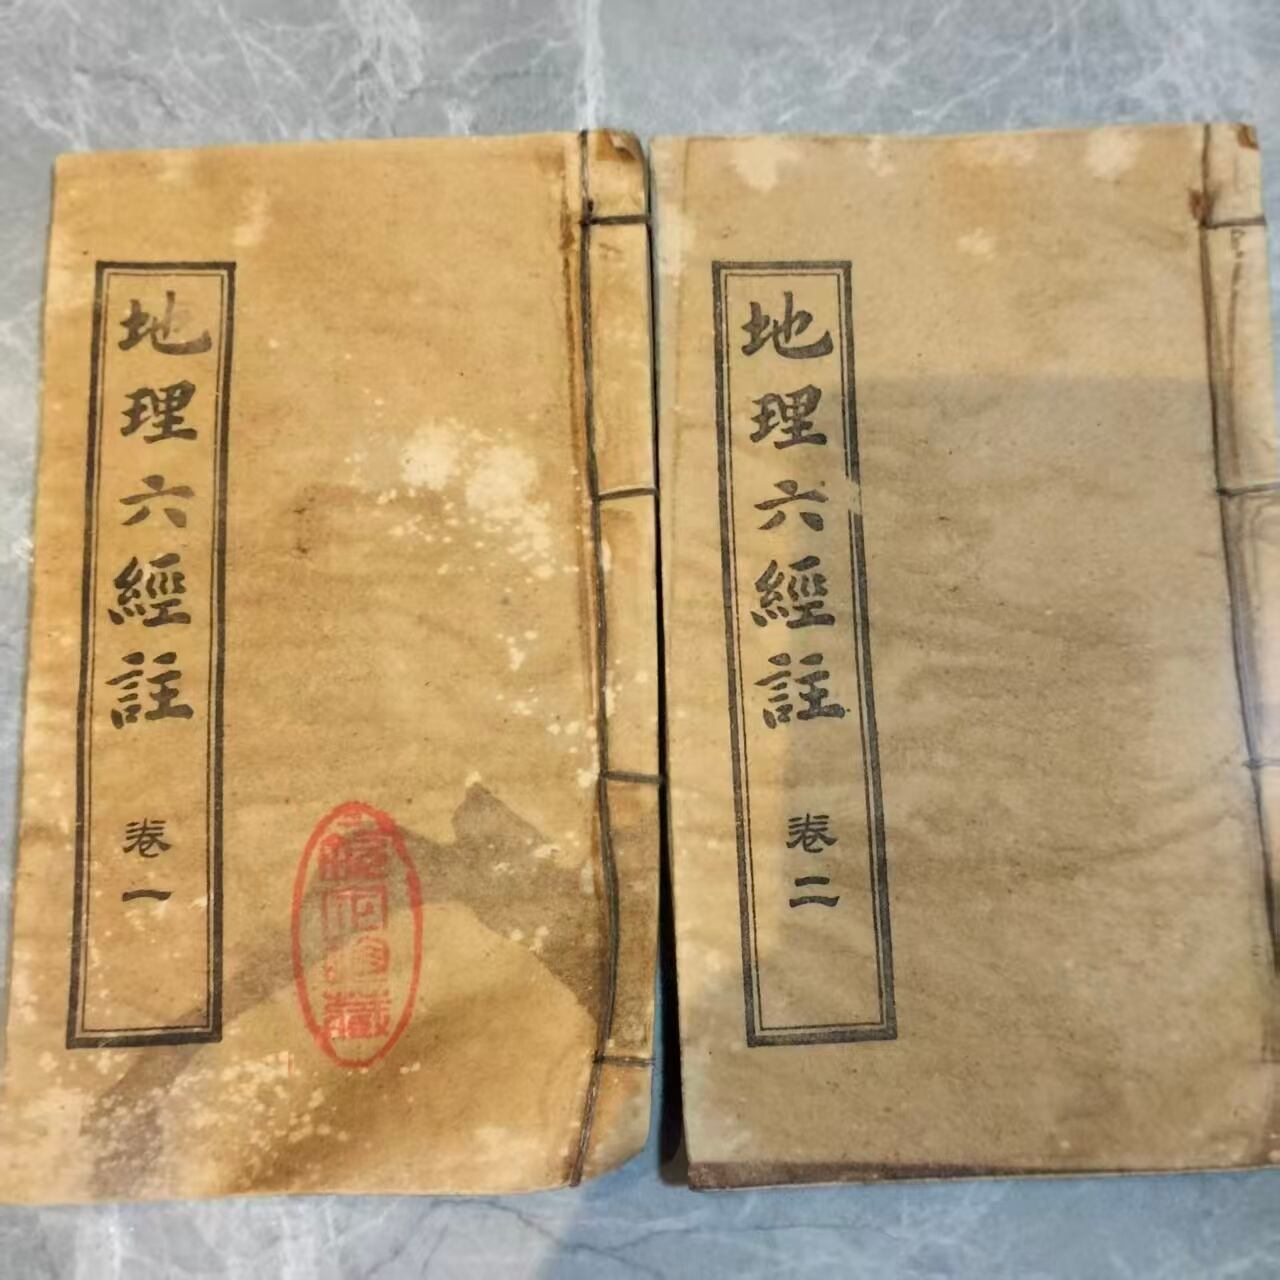 地理六經註
卷一
地理六經註
卷二